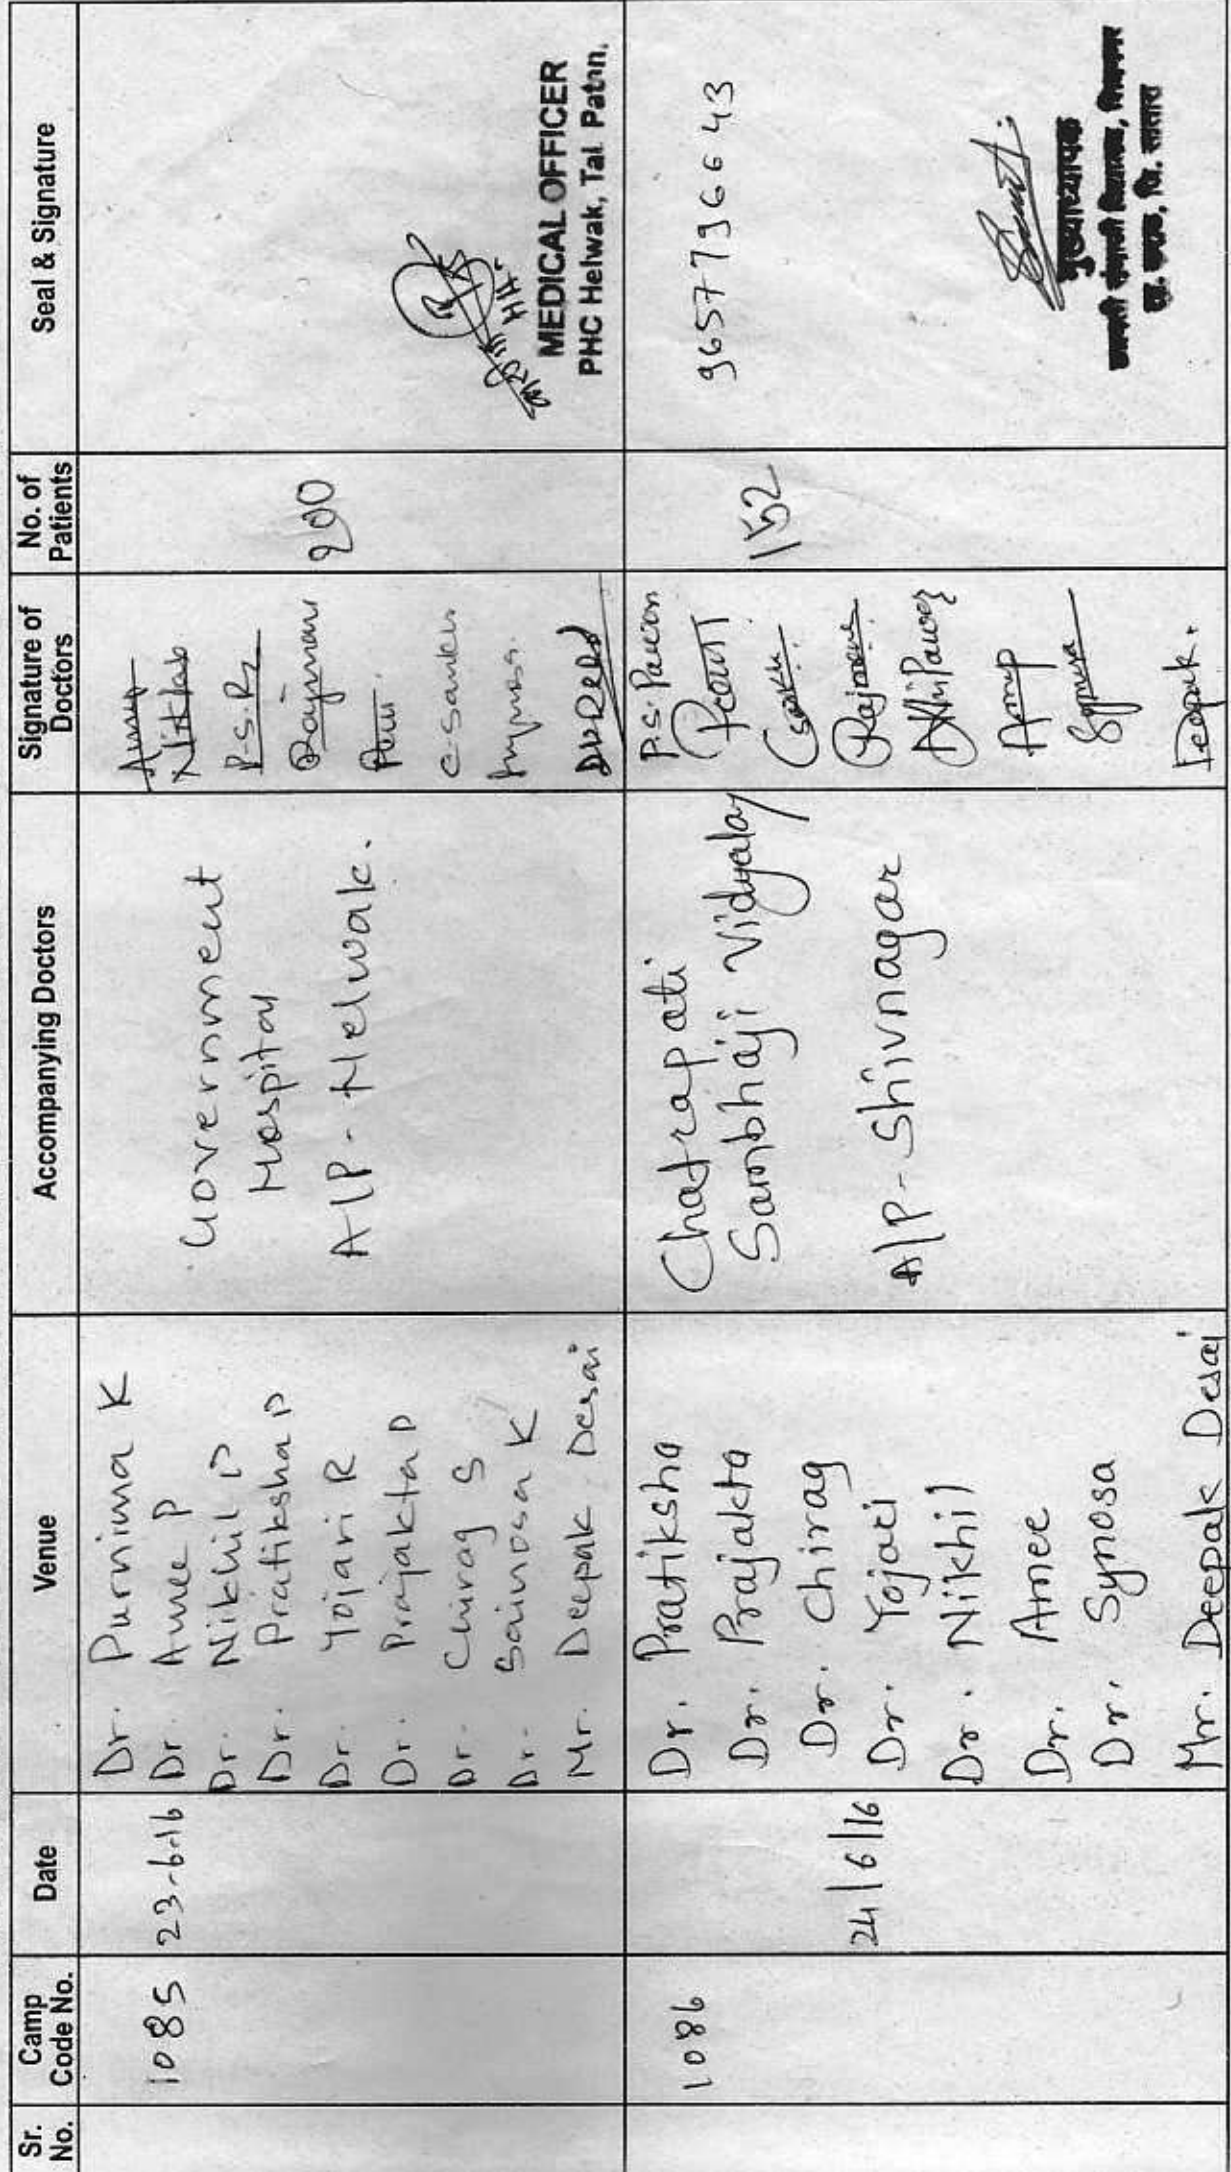 Sr. No.
Camp Code No.
Date
Venue
Accompanying Doctors
Signature of Doctors
No. of Patients
Seal & Signature
1085
23-6-16
Dr. Purnima K
Dr. Amee P
Dr. Nikhil P
Dr. Pratiksha P
Dr. Yojari R
Dr. Prajakta P
Dr. Chirag S
Dr. Sainosa K
Mr. Deepak Desai
Government
Hospital
A/P - Helwak.
P.S.P
Rajmane
C. Sankh
200
MEDICAL OFFICER
PHC Helwak, Tal. Patan.
1086
24/6/16
Dr. Pratiksha
Dr. Prajakta
Dr. Chirag
Dr. Yojari
Dr. Nikhil
Dr. Amee
Dr. Synosa
Mr. Deepak Desai
Chatrapati
Sambhaji Vidyalay
A/P - Shivnagar
P.S. Pawan
Rajmane
Deepak.
152
9657796643
मुख्याध्यापक